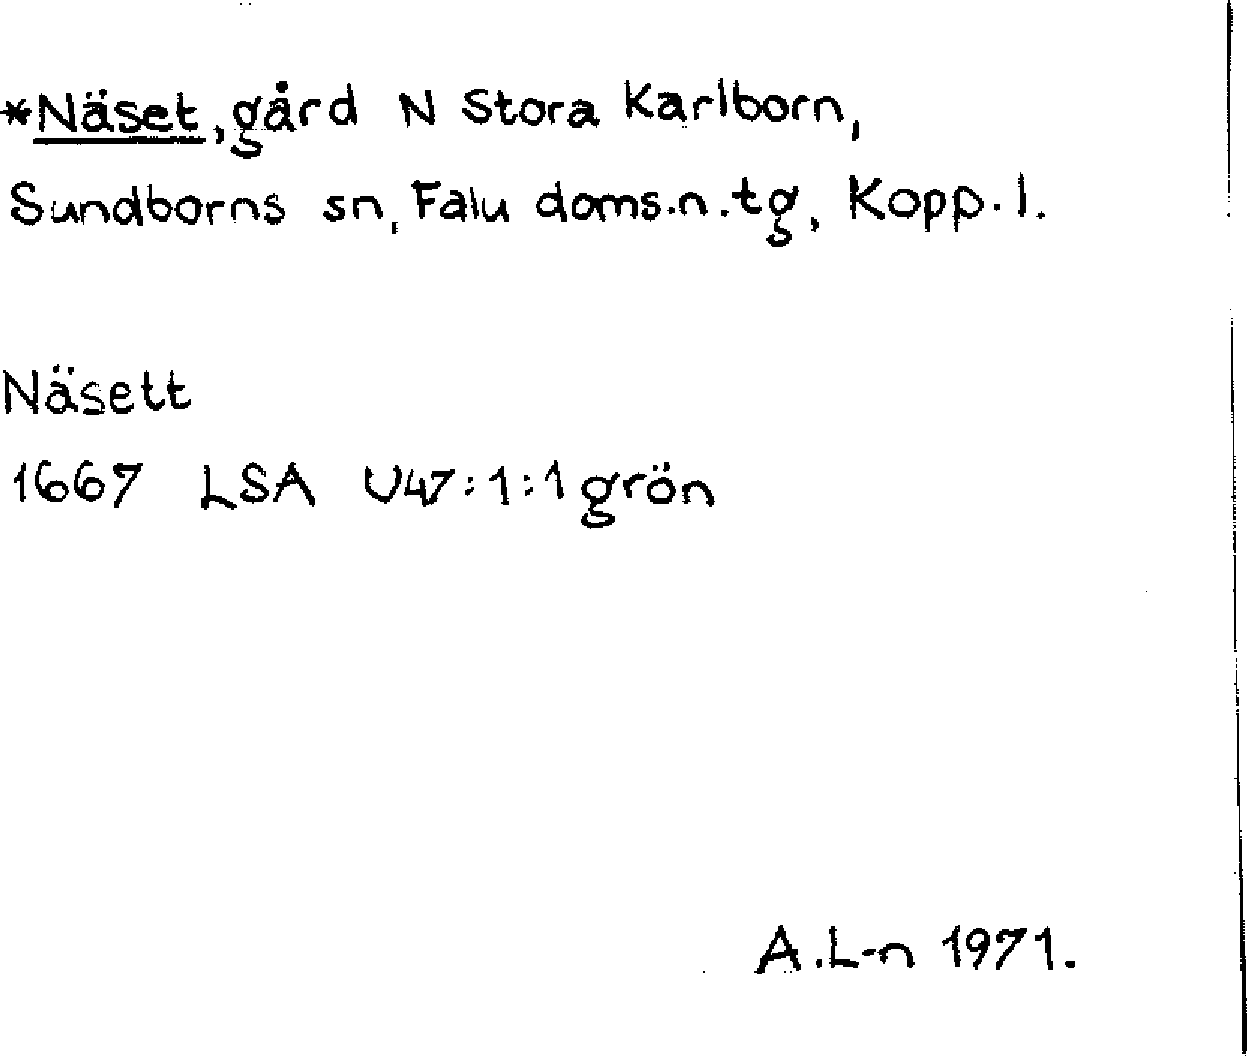 *Näset, gård N Stora Karlborn,
Sundborns sn, Falu doms.n.tg, Kopp.l.
Näsett
1667 LSA U47:1:1 grön
A.L-n 1971.